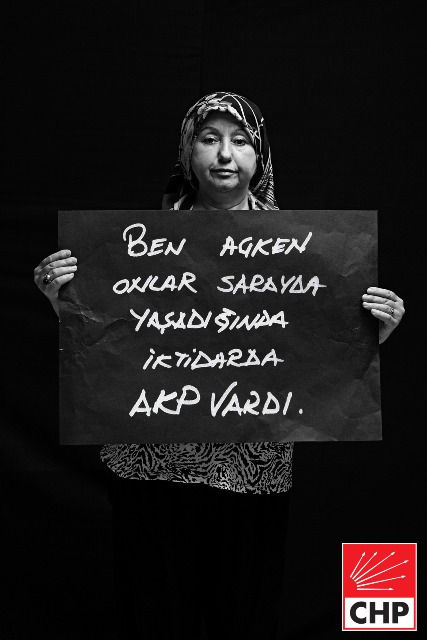 BEN AÇKEN
ONLAR SARAYDA
YAŞADIĞINDA
İKTİDARDA
AKP VARDI.
CHP